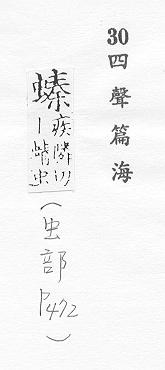 30四聲篇海
螓
疾隣切
丨蜻虫
(虫部P472)